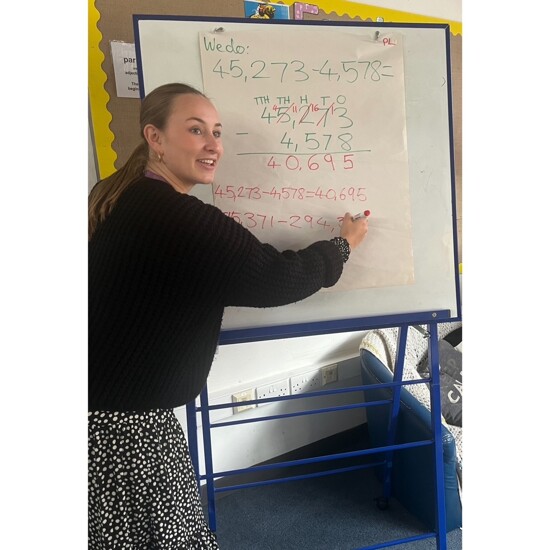 We do:
PL
45,273-4,578=
TTH TH H T O
4 11 16 1
45,273
- 4,578
40,695
45,273-4,578=40,695
5,371-294,
par
CAL